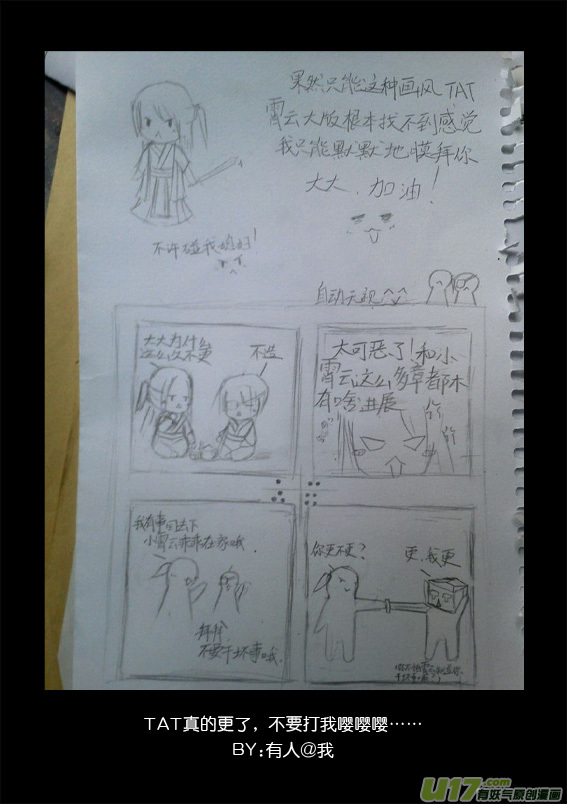 果然只能这种画风TAT
霄云大版根本找不到感觉
我只能默默地膜拜你
大大、加油！
不许碰我媳妇！
自动无视^_^
大大为什么
这么久不更
不造
太可恶了！和小
霄云这么多章都木
有啥进展
我有事回去下
小霄云乖乖在家哦.
拜拜
不要干坏事哦.
你更不更？
更,我更
TAT真的更了，不要打我嘤嘤嘤……
BY:有人@我
U17.com
有妖气原创漫画